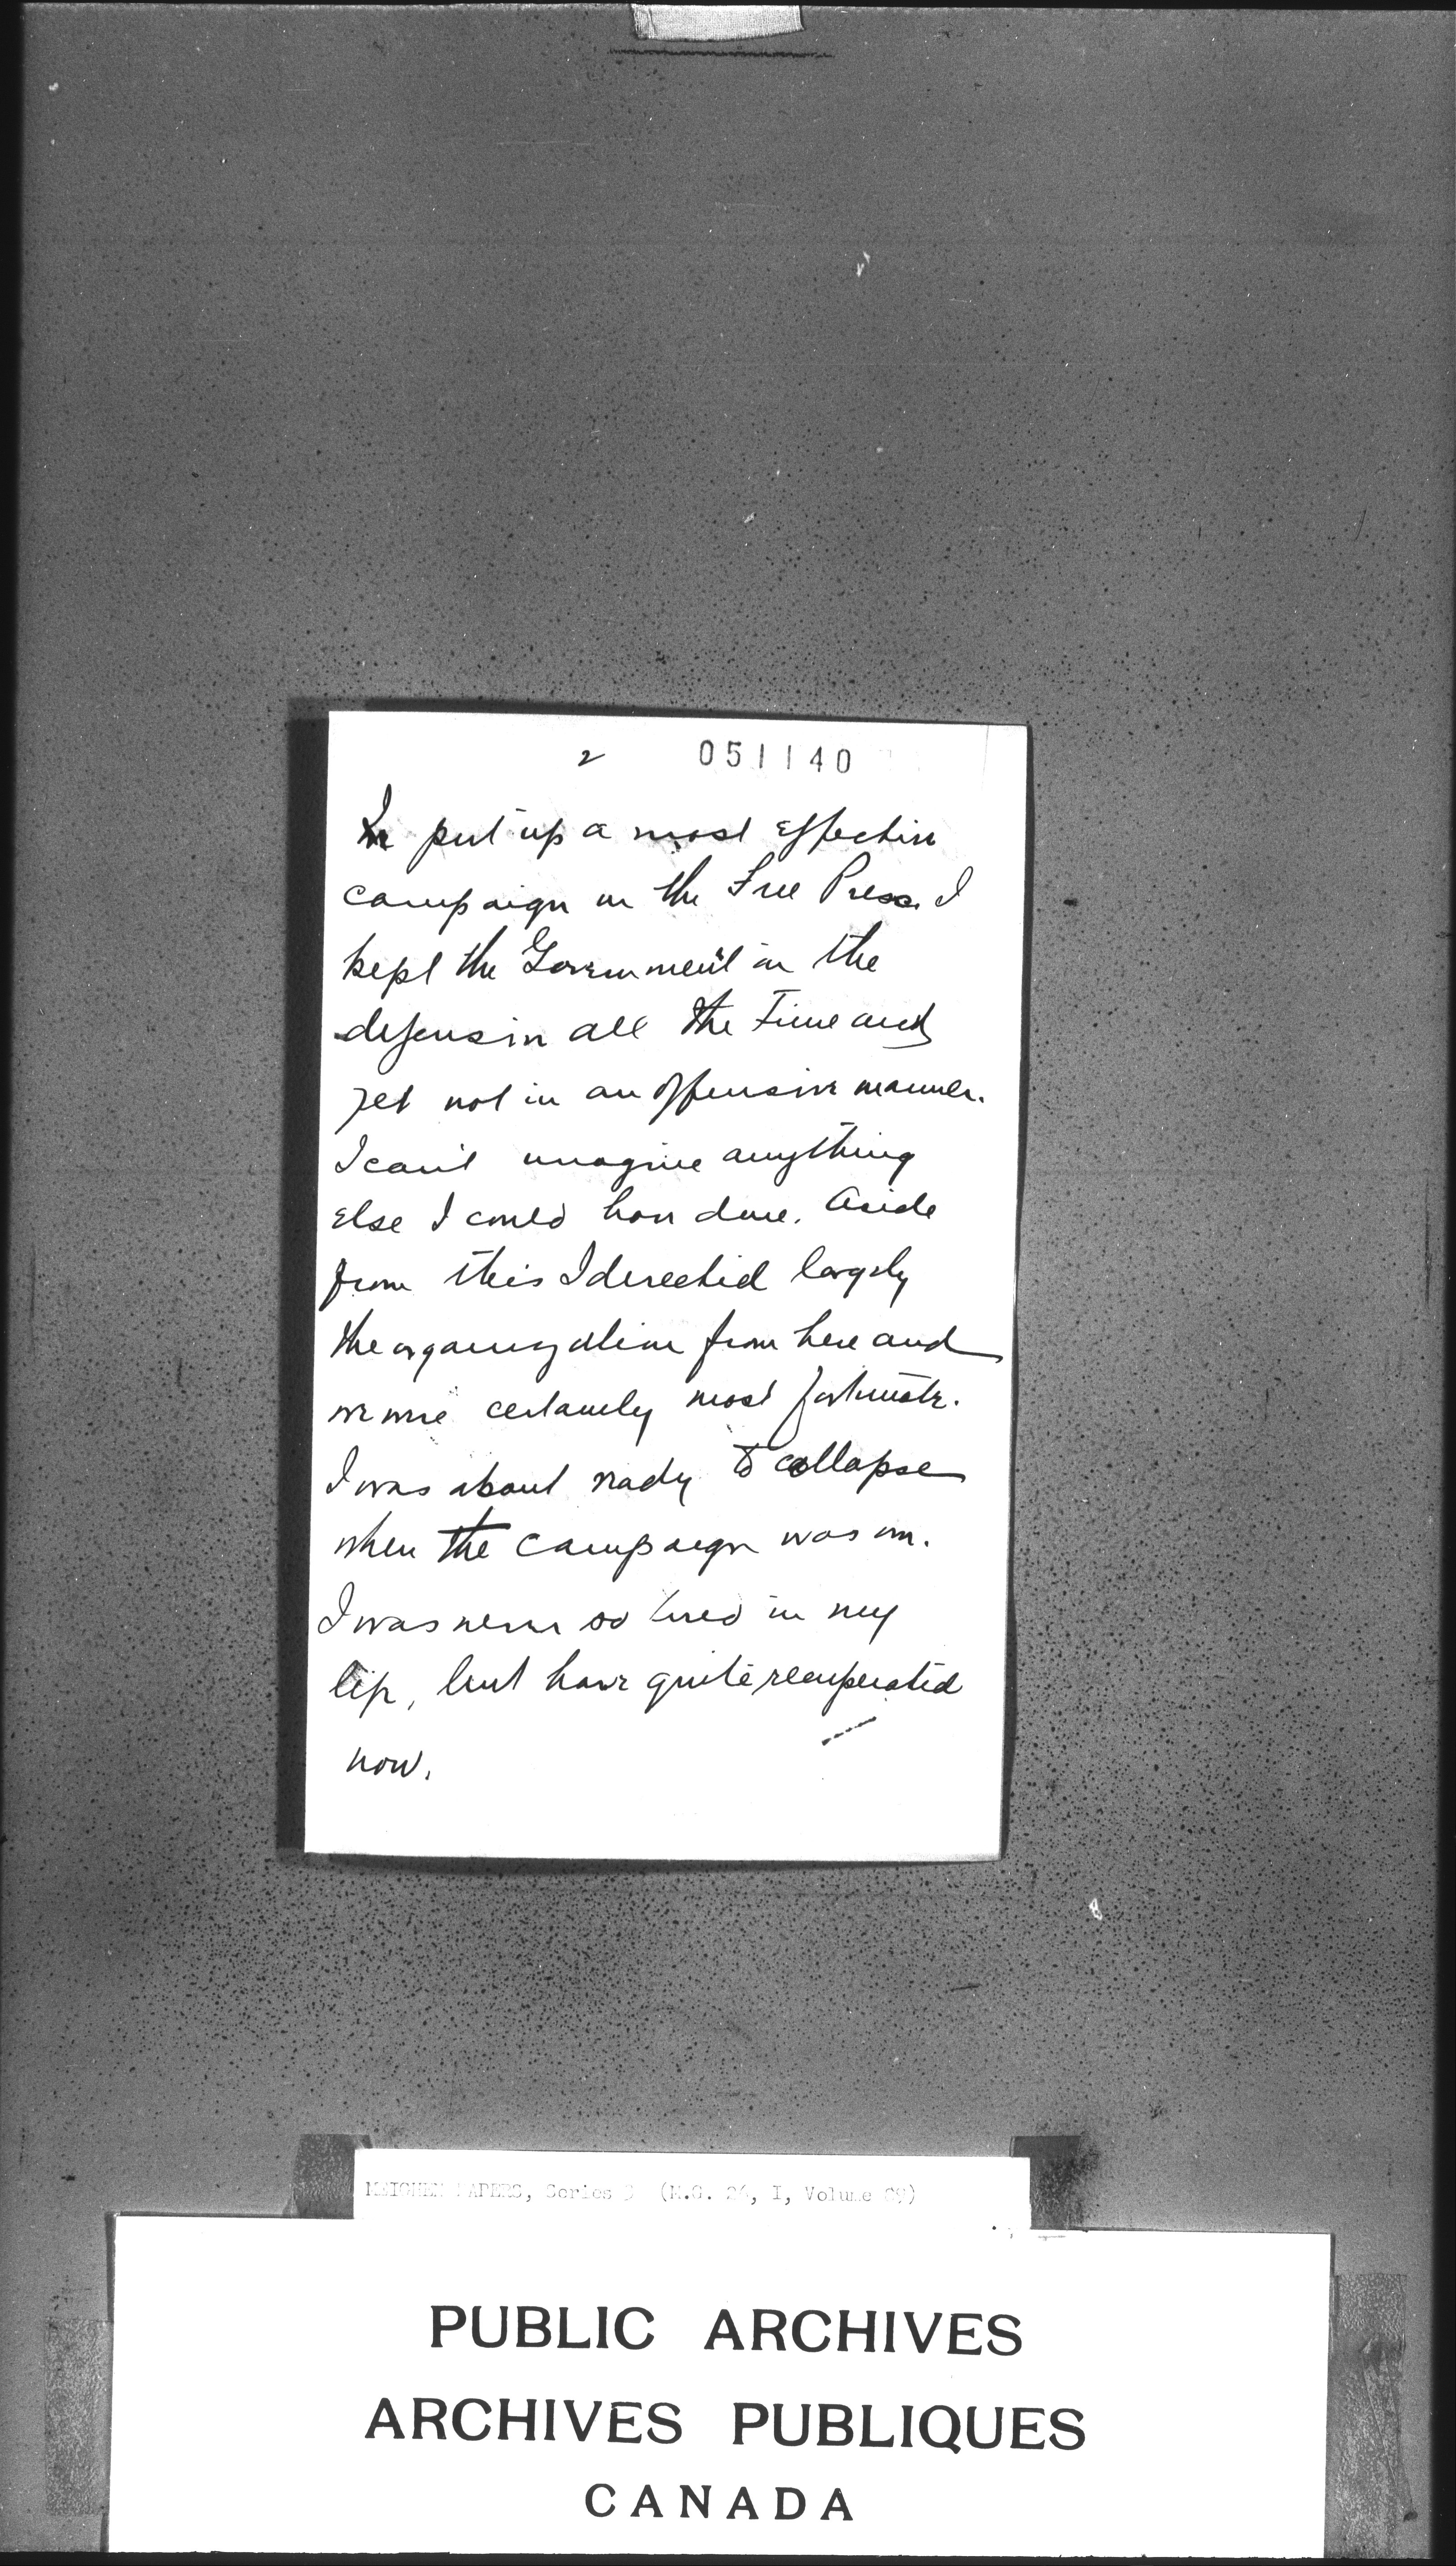 2 051140
We put up a most effective
campaign in the Free Press. I
kept the Government on the
defensive all the time and
yet not in an offensive manner.
I can't imagine anything
else I could have done. Aside
from this I directed largely
the organization from here and
we were certainly most fortunate.
I was about ready to collapse
when the campaign was on.
I was never so tired in my
life, but have quite recuperated
now.
MEIGHEN PAPERS, Series 3 (M.G. 26, I, Volume 89)
PUBLIC ARCHIVES
ARCHIVES PUBLIQUES
CANADA